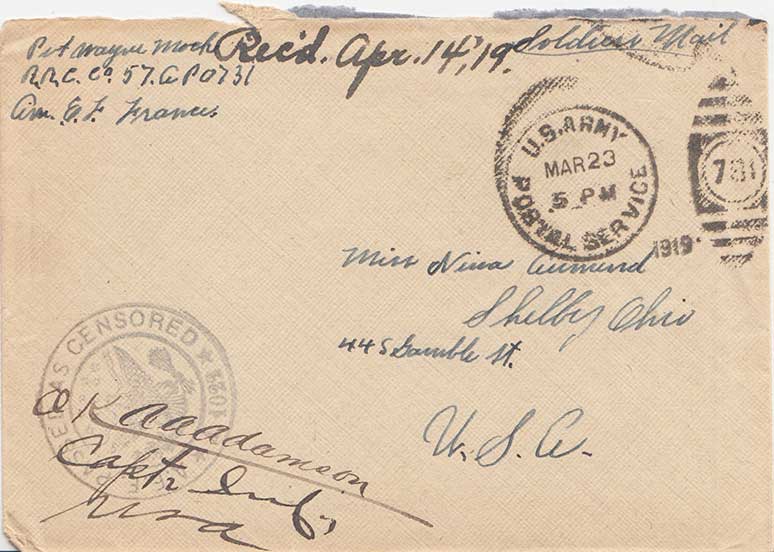 Pvt Wayne Mock
R.R.C. Co. 57. A P O 731
Am. E. F. France
Rec'd. Apr. 14, '19.
Soldiers Mail
U.S. ARMY
MAR 23
5 PM
POSTAL SERVICE
1919
731
Miss Nina Aumend
Shelby Ohio
44 S Gamble St.
U. S. A.
PASSED AS CENSORED
O K AAAdamson
Capt. Inf.
USA